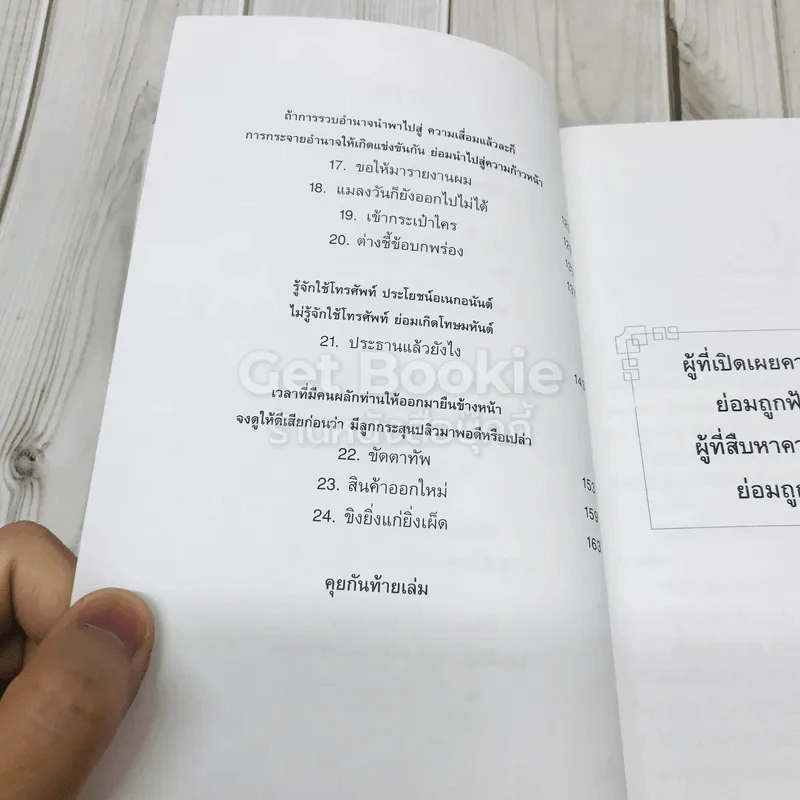 ถ้าการรวบอำนาจนำพาไปสู่ ความเสื่อมแล้วละก็
การกระจายอำนาจให้เกิดแข่งขันกัน ย่อมนำไปสู่ความก้าวหน้า
17. ขอให้มารายงานผม
18. แมลงวันก็ยังออกไปไม่ได้
19. เข้ากระเป๋าใคร
20. ต่างชี้ข้อบกพร่อง
รู้จักใช้โทรศัพท์ ประโยชน์อเนกอนันต์
ไม่รู้จักใช้โทรศัพท์ ย่อมเกิดโทษมหันต์
21. ประธานแล้วยังไง
เวลาที่มีคนผลักท่านให้ออกมายืนข้างหน้า
จงดูให้ดีเสียก่อนว่า มีลูกกระสุนปลิวมาพอดีหรือเปล่า
22. ขัดตาทัพ 153
23. สินค้าออกใหม่ 159
24. ขิงยิ่งแก่ยิ่งเผ็ด 163
คุยกันท้ายเล่ม
Get Bookie
ร้านหนังสือบุ๊กกี้
ผู้ที่เปิดเผย
ย่อมถูก
ผู้ที่สืบหา
ย่อมถูก